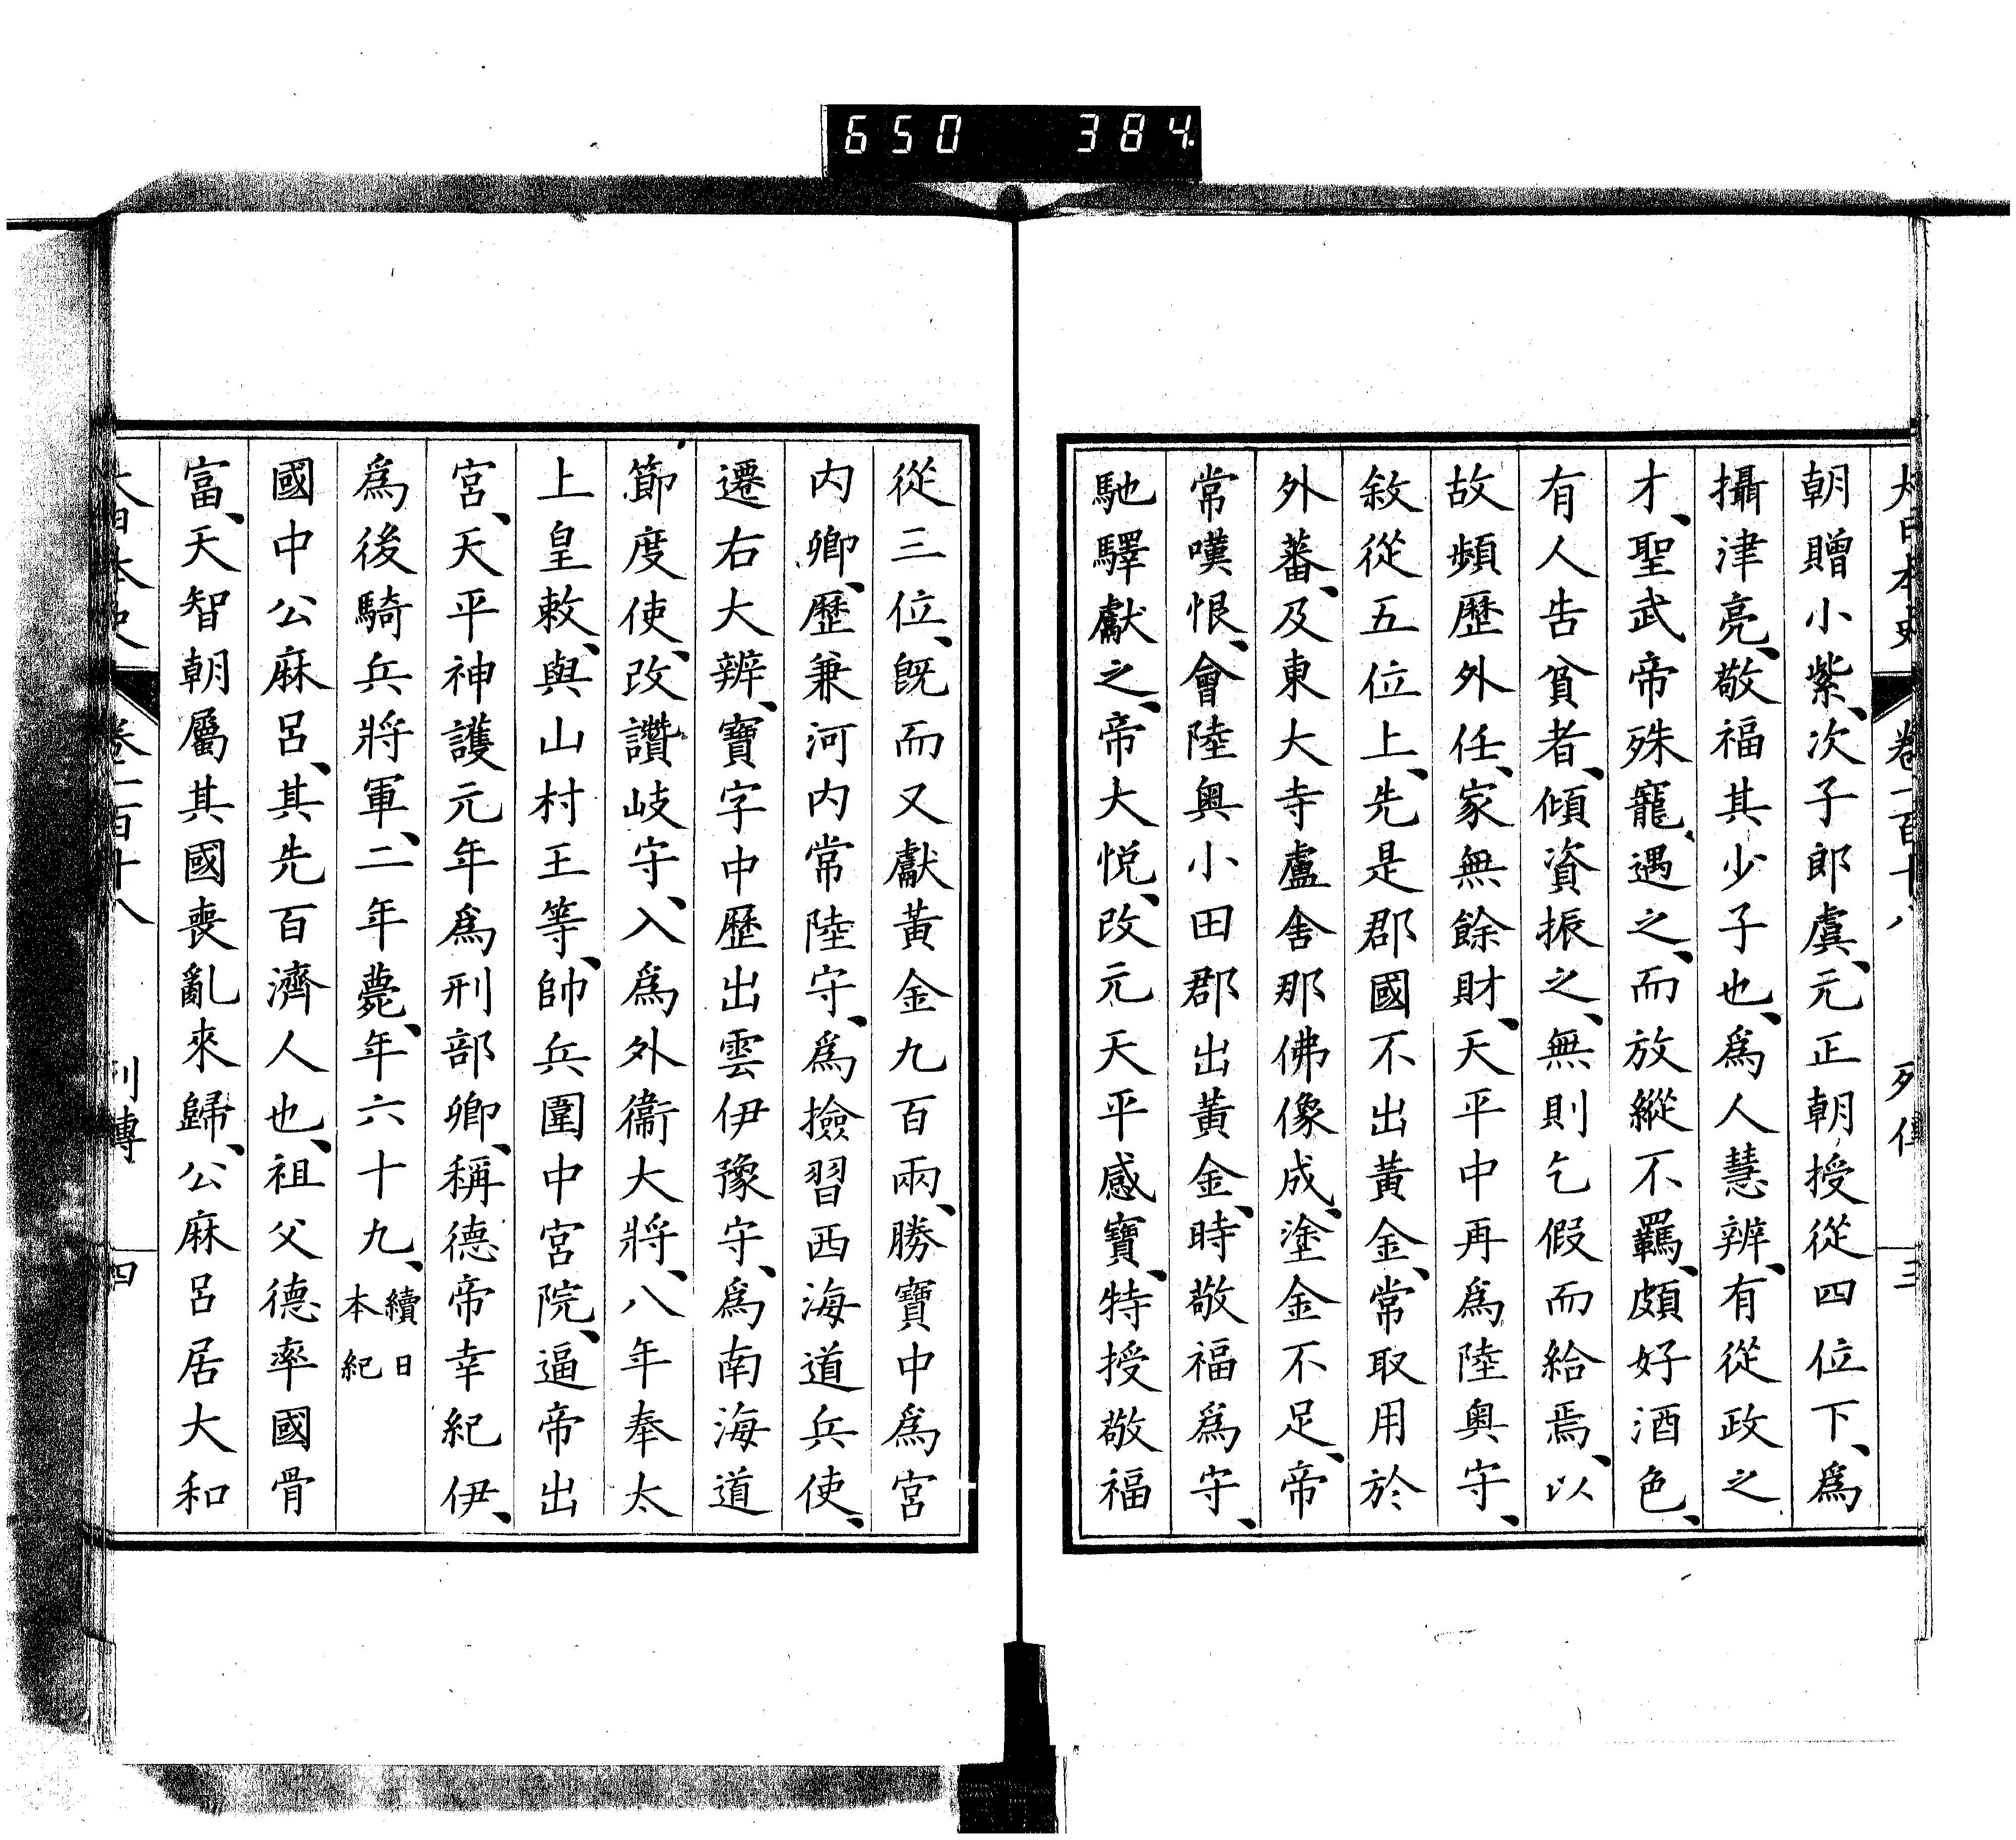 650 384
大日本史 卷一百十八 列傳 三
朝贈小紫、次子郎虞、元正朝授從四位下、爲
攝津亮、敬福其少子也、爲人慧辨、有從政之
才、聖武帝殊寵遇之、而放縱不羈、頗好酒色、
有人告貧者、傾資振之、無則乞假而給焉、以
故頻歷外任、家無餘財、天平中再爲陸奧守、
敘從五位上、先是郡國不出黃金、常取用於
外蕃、及東大寺盧舍那佛像成、塗金不足、帝
常嘆恨、會陸奧小田郡出黃金、時敬福爲守、
馳驛獻之、帝大悅、改元天平感寶、特授敬福
從三位、旣而又獻黃金九百兩、勝寶中爲宮
內卿、歷兼河內常陸守、爲撿習西海道兵使、
遷右大辨、寶字中歷出雲伊豫守、爲南海道
節度使、改讚岐守、入爲外衞大將、八年奉太
上皇敕、與山村王等、帥兵圍中宮院、逼帝出
宮、天平神護元年爲刑部卿、稱德帝幸紀伊、
爲後騎兵將軍、二年薨、年六十九、續日本紀
國中公麻呂、其先百濟人也、祖父德率國骨
富、天智朝屬其國喪亂來歸、公麻呂居大和
大日本史 卷一百十八 列傳 四